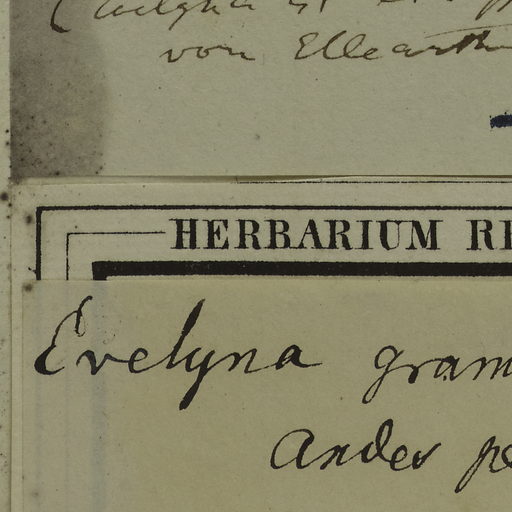 von Elleanth
HERBARIUM RE
Evelyna gram
Andes pe